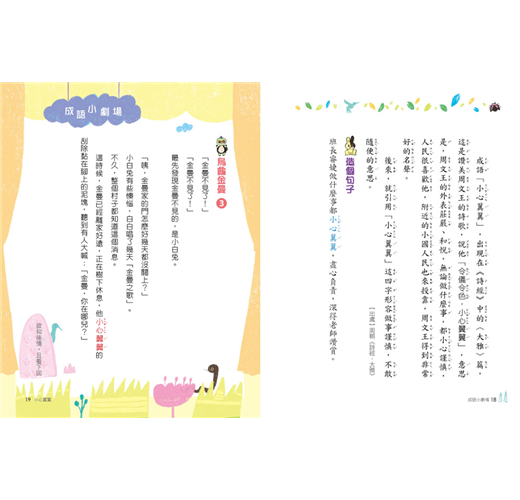 成語「小心翼翼」,出現在《詩經》中的〈大雅〉篇,
這是讚美周文王的詩歌,說他「令儀令色,小心翼翼」,意思
是,周文王的外表莊嚴、和悅,無論做什麼事,都小心謹慎,
人民很喜歡他,附近的小國人民也來投靠,周文王得到非常
好的名聲。
後來,就引用「小心翼翼」這四字形容做事謹慎,不敢
隨便的意思。
【出處】《詩經‧大雅》
造個句子
班長睿婕做什麼事都小心翼翼,盡心負責,深得老師讚賞。
成語小劇場 18
成語小劇場
烏龜金曼 3
「金曼不見了!」
「金曼不見了!」
最先發現金曼不見的,是小白兔。
「咦,金曼家的門怎麼好幾天都沒關上?」
小白兔有些懊惱,白白唱了幾天「金曼之歌」。
不久,整個村子都知道這個消息。
這時候,金曼已經離家好遠,正在樹下休息,他小心翼翼的
刮除黏在腳上的泥塊,聽到有人大喊:「金曼,你在哪兒?」
欲知後情,且看下回
19 小心翼翼